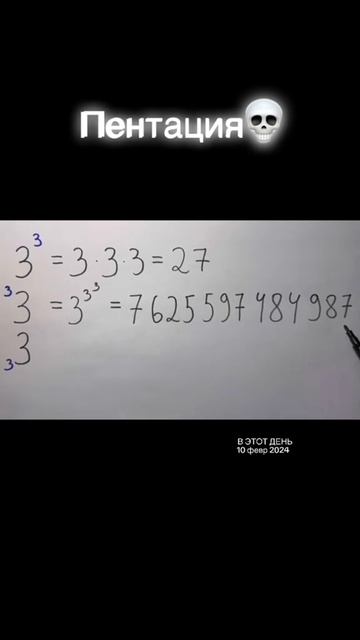 Пентация💀
3³ = 3·3·3 = 27
³3 = 3^3^3 = 7625597484987
₃3
В ЭТОТ ДЕНЬ
10 февр 2024